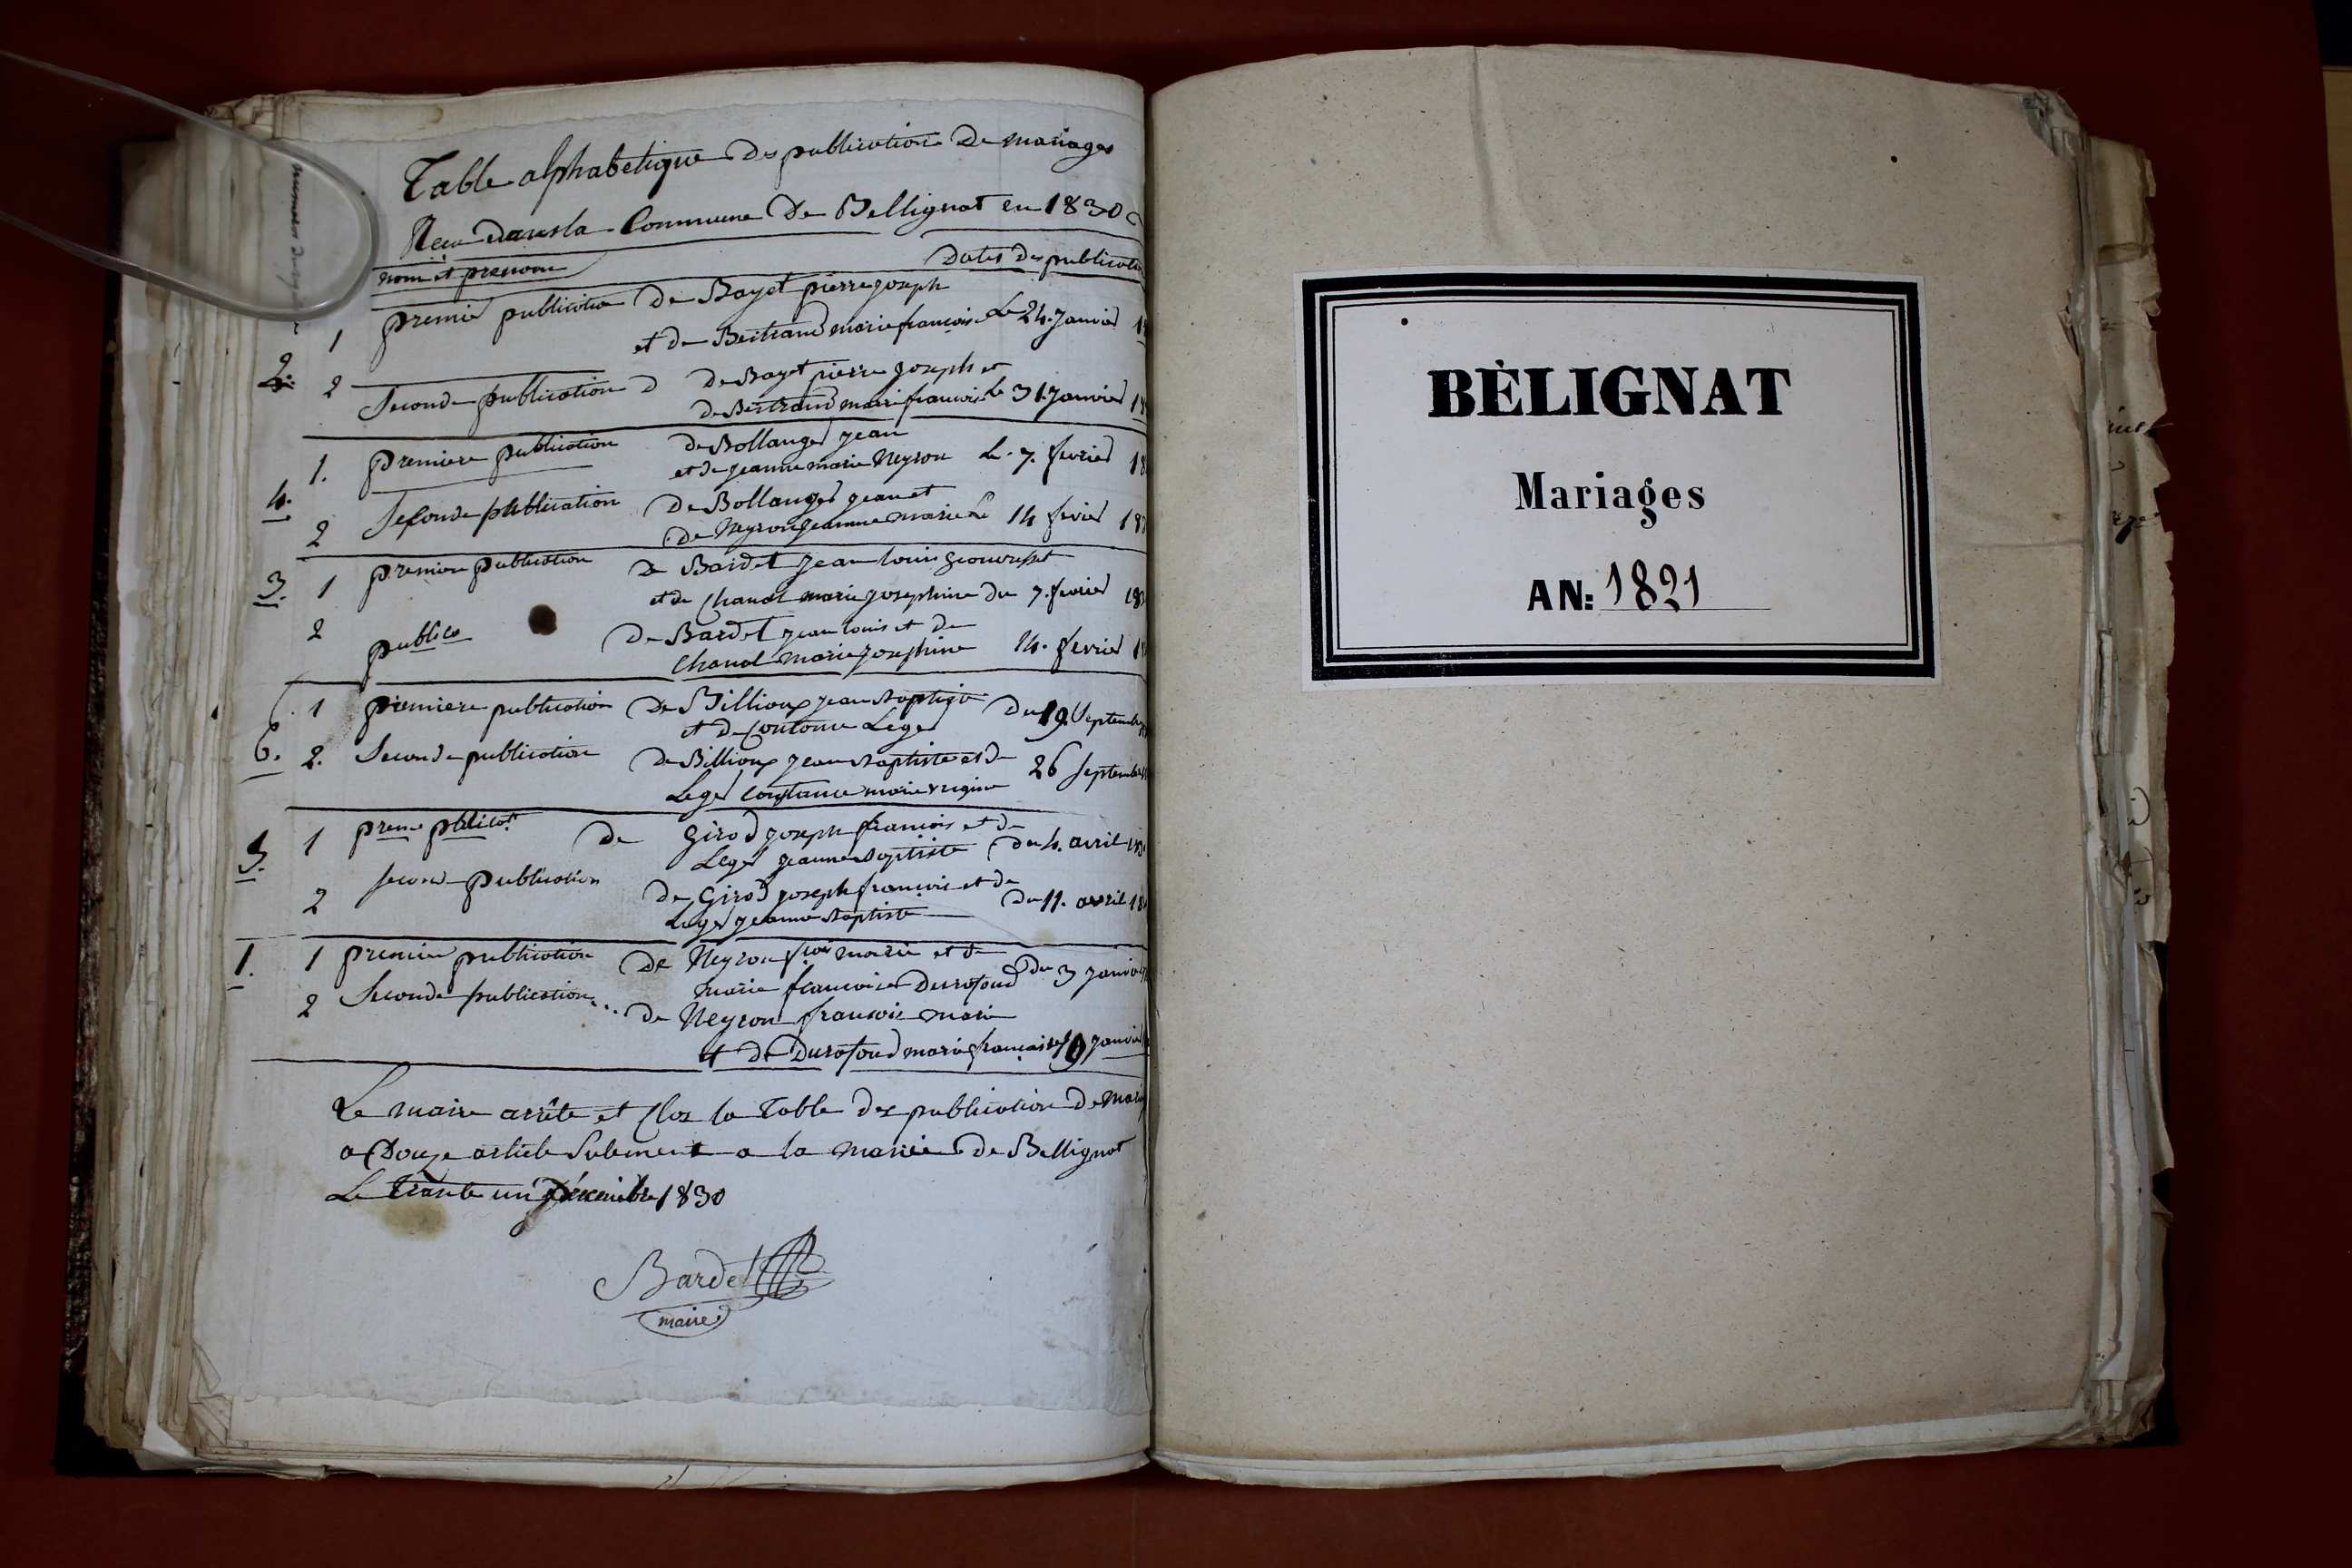 Table alphabetique des publications de mariages
Recu dans la Commune De Bellignat en 1830
nom et prenom
Dates des publicati
1 premier publication De Bayet pierre joseph
et de Bertrand marie francoise Le 24. janvier
2. 2 Seconde publication d de Bayet pierre joseph et
de Bertrand marie francoise le 31. janvier
1. premiere publication de Bollanger jean
et de jeanne marie Neyron Le 7. fevrier
4. 2 Seconde publication De Bollanger jean et
de Neyron jeanne marie Le 14 fevrier
3. 1 premiere publication De Bardet jean louis
et de Chanal marie josephine du 7. fevrier
2 publico De Bardet jean louis et de
Chanal marie josephine 14. fevrier
1 premiere publication De Billioux jean baptiste
et de Leger Du 19. Septembr
6. 2. Seconde publication De Billioux jean baptiste et de
Leger Constance marie 26 Septembr
1 prem.e De Girod joseph francois et de
Leger jeanne baptiste Du 4. avril
2 second publication de Girod joseph francois et de
Leger jeanne baptiste Du 11. avril
1. 1 premier publication De Neyron marie et de
marie francoise Durafour du 3 janvier
2 Seconde publication... de Neyron francois marie
et de Durafour marie francoise 10 janvier
Le maire arrête et Clos la Table des publication de mari
a Douze article Sulement a la mairie de Bellignat
Le trante un Décembre 1830
Bardet
maire
BÈLIGNAT
Mariages
AN: 1821